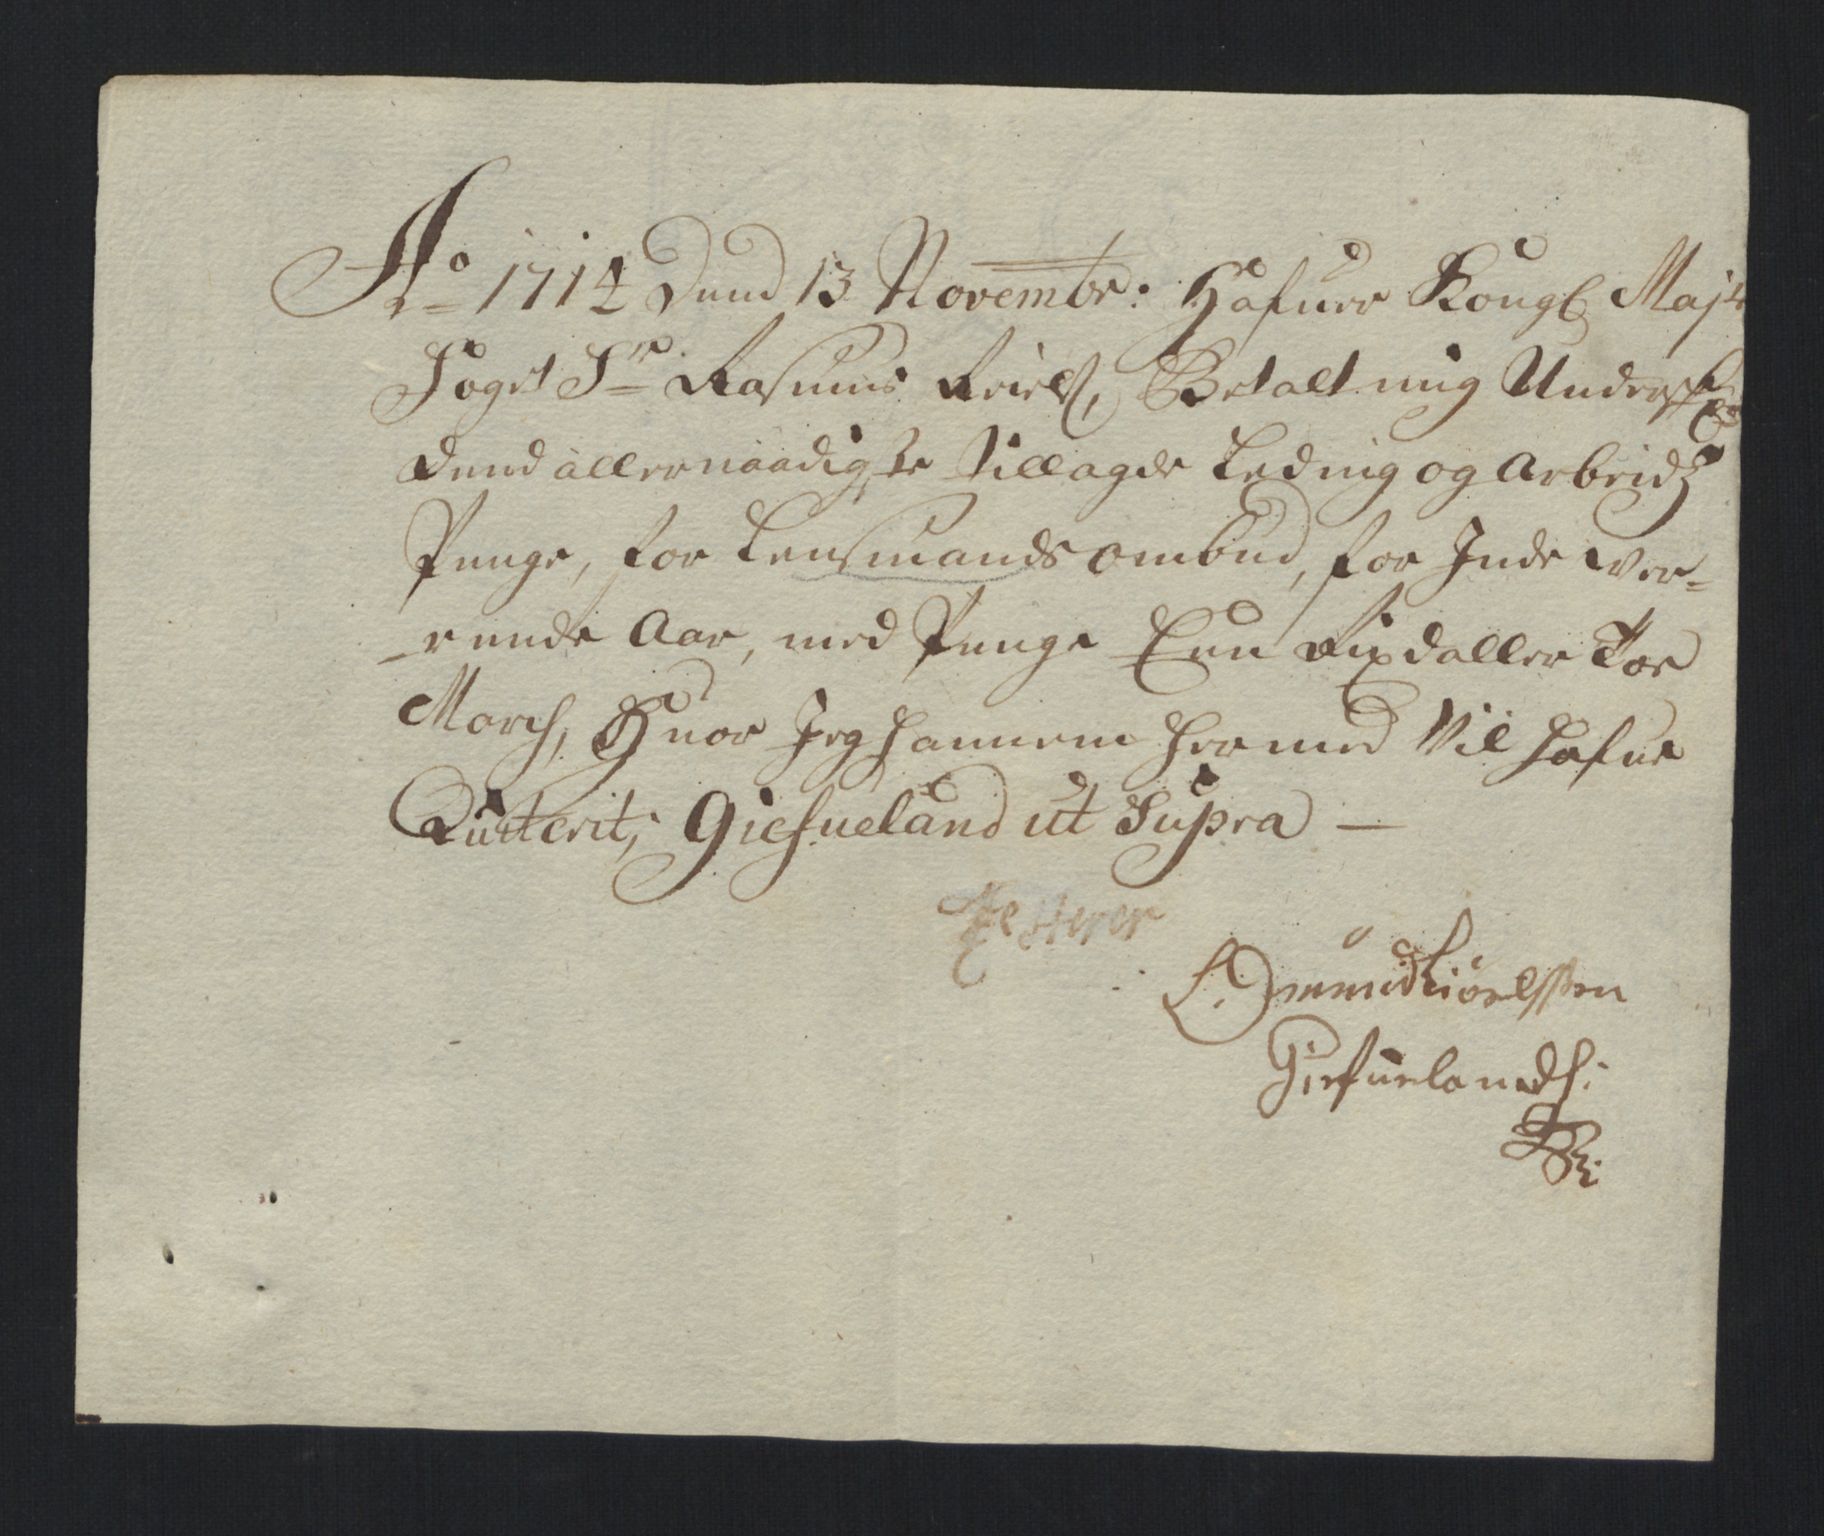 Ao 1714 Dend 13 Novembr: Hafuer Kongl Majts
Foget Sr Rasmus Krield, Betalt mig Undersch:
dend allernaadigste Tillagde Leding og Arbeidz
Penge, for Lensmands ombud, for Inde wer-
-rende Aar, med Penge Een Rixdaller Toe
March, Huor Jeg hannem hermed Vil hafue
Quiterit, Giefueland ut Supra —
Amund
Giefuelands: